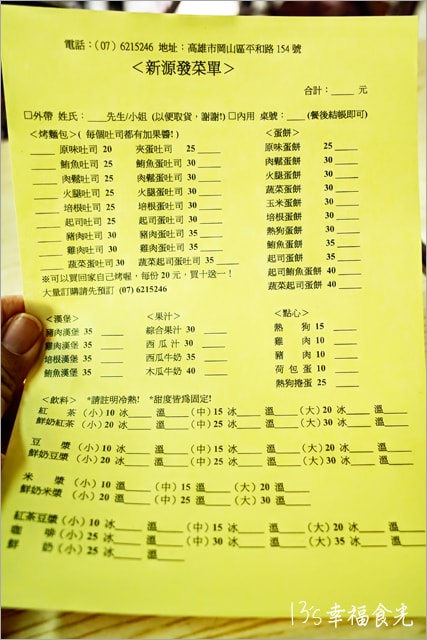 電話：（07）6215246 地址：高雄市岡山區平和路 154 號
＜新源發菜單＞
合計：_____ 元
□外帶 姓氏：____先生/小姐（以便取貨，謝謝!）□內用 桌號：____（餐後結帳即可）
＜烤麵包＞（ 每個吐司都有加果醬! ）
____ 原味吐司 20 夾蛋吐司 25 ____
____ 鮪魚吐司 25 鮪魚蛋吐司 30 ____
____ 肉鬆吐司 25 肉鬆蛋吐司 30 ____
____ 火腿吐司 25 火腿蛋吐司 30 ____
____ 培根吐司 25 培根蛋吐司 30 ____
____ 起司吐司 25 起司蛋吐司 30 ____
____ 豬肉吐司 30 豬肉蛋吐司 35 ____
____ 雞肉吐司 30 雞肉蛋吐司 35 ____
____ 蔬菜蛋吐司 30 蔬菜起司蛋吐司 35 ____
※可以買回家自己烤喔，每份 20 元，買十送一！
大量訂購請先預訂 (07) 6215246
＜蛋餅＞
原味蛋餅 25 ____
肉鬆蛋餅 30 ____
火腿蛋餅 30 ____
蔬菜蛋餅 30 ____
玉米蛋餅 30 ____
培根蛋餅 30 ____
熱狗蛋餅 30 ____
鮪魚蛋餅 35 ____
起司蛋餅 35 ____
起司鮪魚蛋餅 40 ____
蔬菜起司蛋餅 40 ____
＜漢堡＞
豬肉漢堡 35 ____
雞肉漢堡 35 ____
培根漢堡 35 ____
鮪魚漢堡 35 ____
＜果汁＞
綜合果汁 30 ____
西瓜汁 30 ____
西瓜牛奶 35 ____
木瓜牛奶 40 ____
＜點心＞
熱狗 15 ____
雞肉 10 ____
豬肉 10 ____
荷包蛋 10 ____
熱狗捲蛋 25 ____
＜飲料＞ *請註明冷熱! *甜度皆為固定!
紅茶（小）10 冰____ 溫____（中）15 冰____ 溫____（大）20 冰____ 溫____
鮮奶紅茶（小）20 冰____ 溫____（中）25 冰____ 溫____（大）30 冰____ 溫____
豆漿（小）10 冰____ 溫____（中）15 冰____ 溫____（大）20 冰____ 溫____
鮮奶豆漿（小）20 冰____ 溫____（中）25 冰____ 溫____（大）30 冰____ 溫____
米漿（小）10 溫____（中）15 溫____（大）20 溫____
鮮奶米漿（小）20 溫____（中）25 溫____（大）30 溫____
紅茶豆漿（小）10 冰____ 溫____（中）15 冰____ 溫____（大）20 冰____ 溫____
咖啡（小）25 冰____ 溫____（中）30 冰____ 溫____（大）35 冰____ 溫____
鮮奶（小）25 冰____ 溫____
13's幸福食光